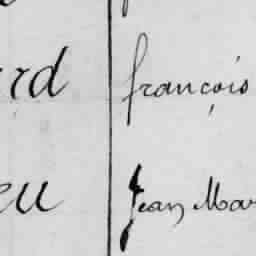 rd françois
eu Jean Mar